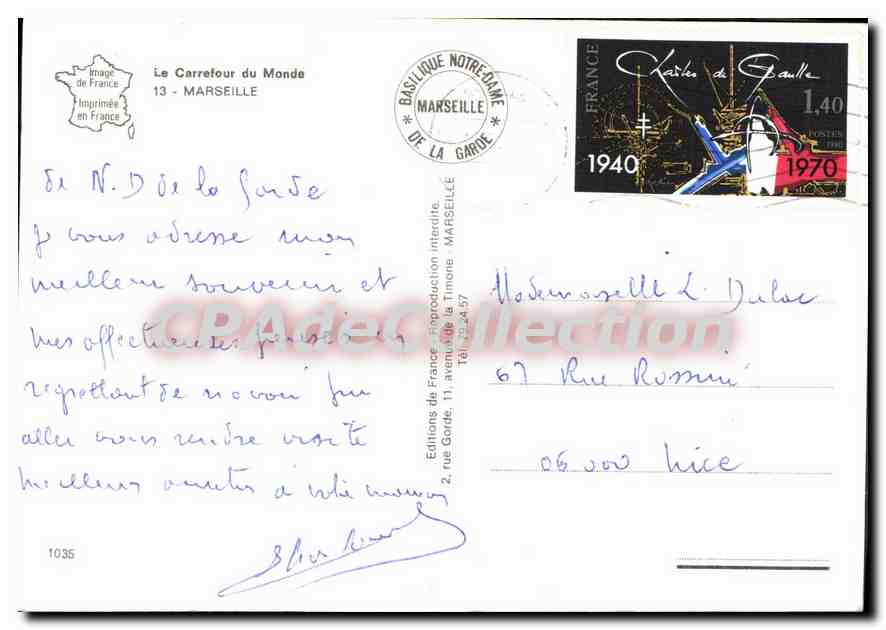 Image
de France
Imprimée
en France
Le Carrefour du Monde
13 - MARSEILLE
BASILIQUE NOTRE-DAME
MARSEILLE
* DE LA GARDE *
FRANCE
Charles de Gaulle
1,40
POSTES
1980
1940
1970
de N.D de la Garde
Je vous adresse mon
meilleur souvenir et
mes affectueuses pensées en
regrettant de n'avoir pu
aller vous rendre visite
Meilleures amitiés à votre maman
Editions de France - Reproduction interdite.
2, rue Gorde, 11, avenue de la Timone - MARSEILLE
Tél. 79.24.57
Mademoiselle L. Dulac
67 Rue Rossini
06000 Nice
1035
CPAdeCollection